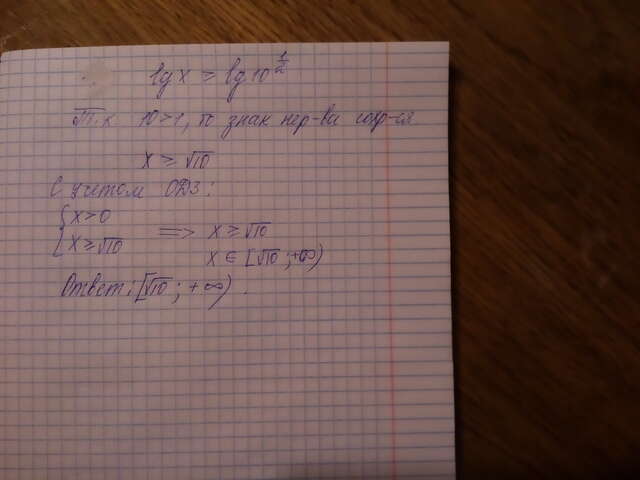 lg x ≥ lg 10^½
Т.к 10>1, то знак нер-ва сохр-ся
x ≥ √10
С учетом ОДЗ:
{x>0
{x≥√10 => x ≥ √10
x ∈ [√10 ; +∞)
Ответ: [√10 ; +∞).